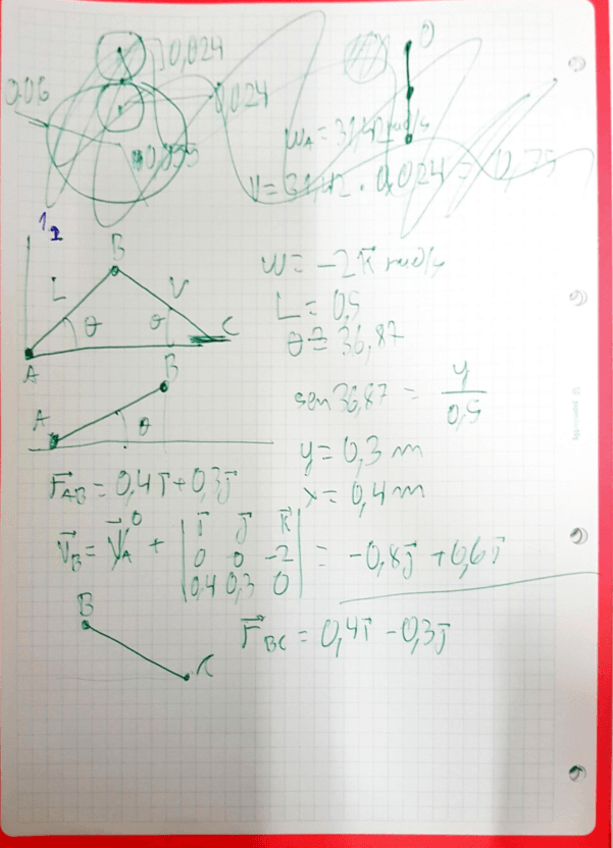 0,024
0,024
0.06
O
W_A = 31,42 rad/s
V = 31,42 · 0,024 = 0,75
B
L
θ
θ
C
A
W = -2k̄ rad/s
L = 0,5
θ ≅ 36,87
B
A
θ
sen 36,87 = y/0,5
y = 0,3 m
x = 0,4 m
r̄_AB = 0,4ī + 0,3j̄
V̄_B = V̄_A⁰ + | ī j̄ k̄ | = -0,8j̄ + 0,6ī
0 0 -2
0,4 0,3 0
B
C
r̄_BC = 0,4ī - 0,3j̄